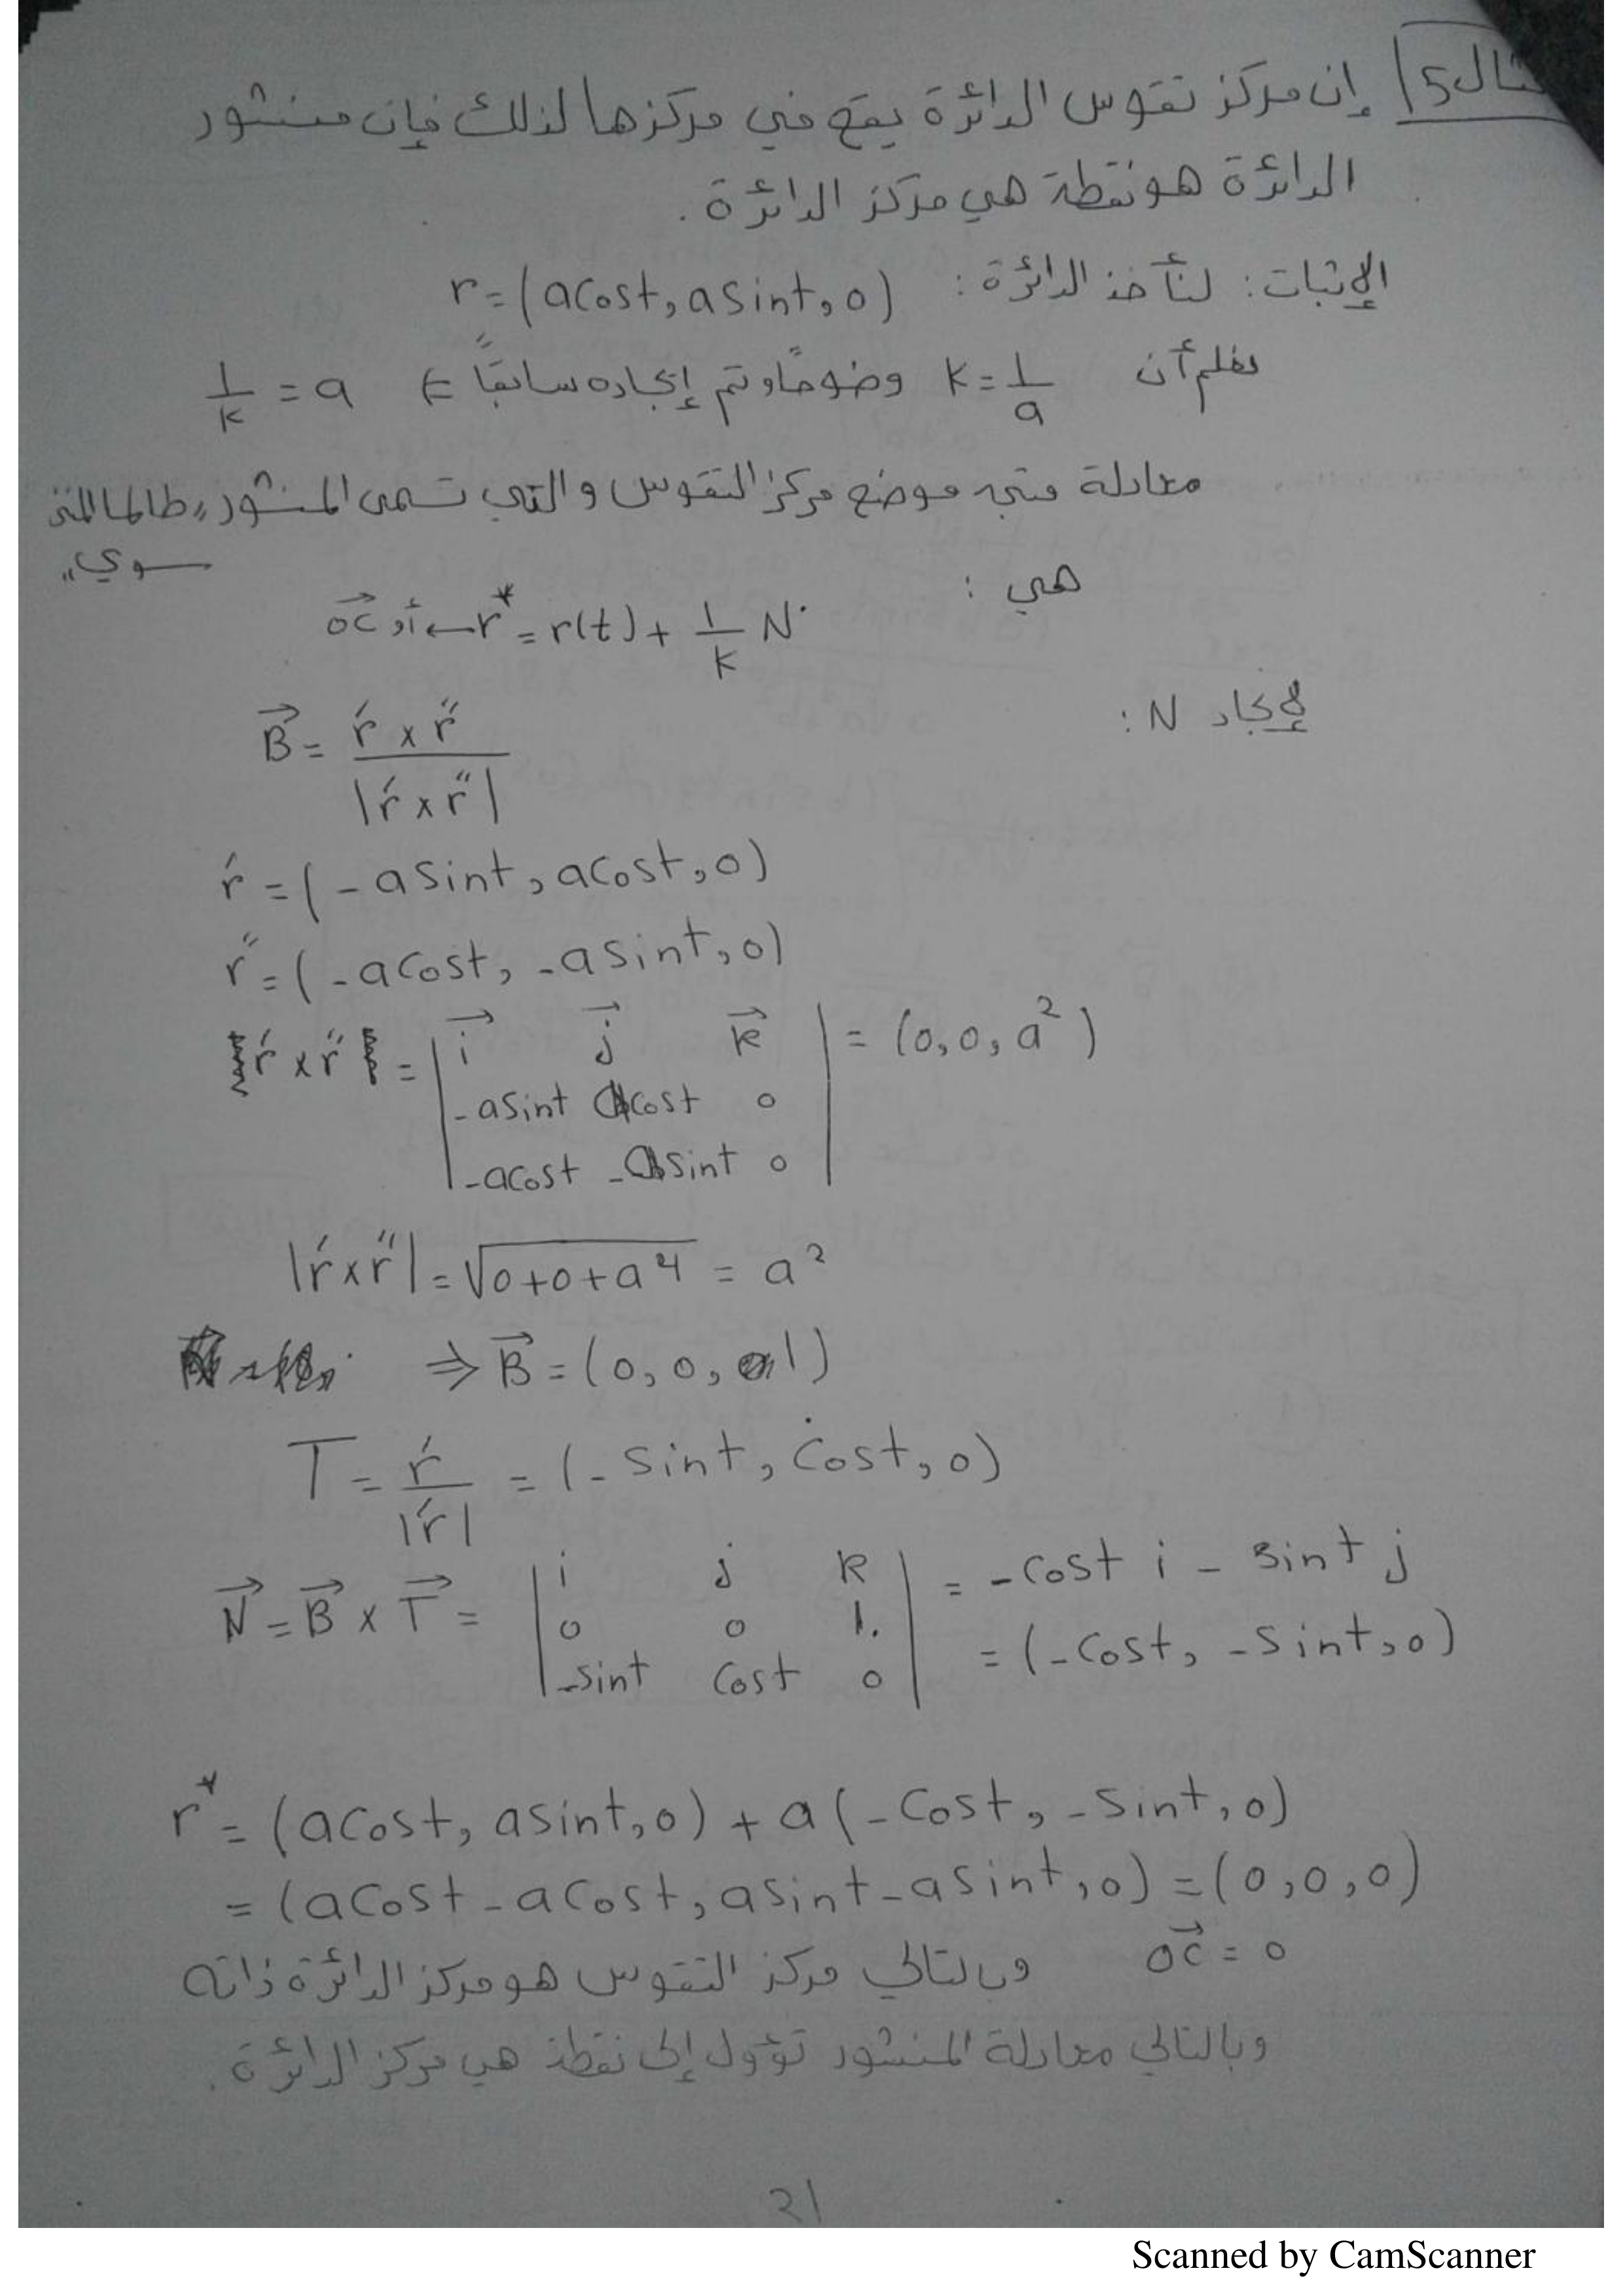 مثال 5) إن مركز تقوس الدائرة يقع في مركزها لذلك فإن منشور
الدائرة هو نقطة هي مركز الدائرة .
الإثبات : لنأخذ الدائرة : r = (a cost, a sint, 0)
نعلم أن k = 1/a وضوحاً وتم إيجاده سابقاً ⇐ 1/k = a
معادلة متجه موضع مركز التقوس والتي تسمى المنشور "طالما المنحني
سوي"
هي :
أو OC⃗ ← r* = r(t) + 1/k N
لإيجاد N :
B⃗ = r′ × r″ / |r′ × r″|
r′ = (-a sint, a cost, 0)
r″ = (-a cost, -a sint, 0)
r′ × r″ = | i⃗ j⃗ k⃗ | = (0, 0, a²)
-a sint a cost 0
-a cost -a sint 0
|r′ × r″| = √0+0+a⁴ = a²
⇒ B⃗ = (0, 0, 1)
T = r′ / |r′| = (-sint, cost, 0)
N⃗ = B⃗ × T⃗ = | i j k | = -cost i - sint j
0 0 1
-sint cost 0
= (-cost, -sint, 0)
r* = (a cost, a sint, 0) + a(-cost, -sint, 0)
= (a cost - a cost, a sint - a sint, 0) = (0, 0, 0)
OC⃗ = 0 وبالتالي مركز التقوس هو مركز الدائرة ذاته
وبالتالي معادلة المنشور تؤول إلى نقطة هي مركز الدائرة .
21
Scanned by CamScanner